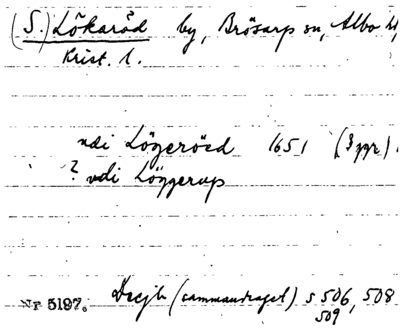 (S.) Lökaröd by, Brösarp sn, Albo hd,
Krist. l.
udi Lögeröed 1651 (3 ggr).
? udi Löggerup
Decjb (sammandraget) s 506, 508
509
Nr 5197.